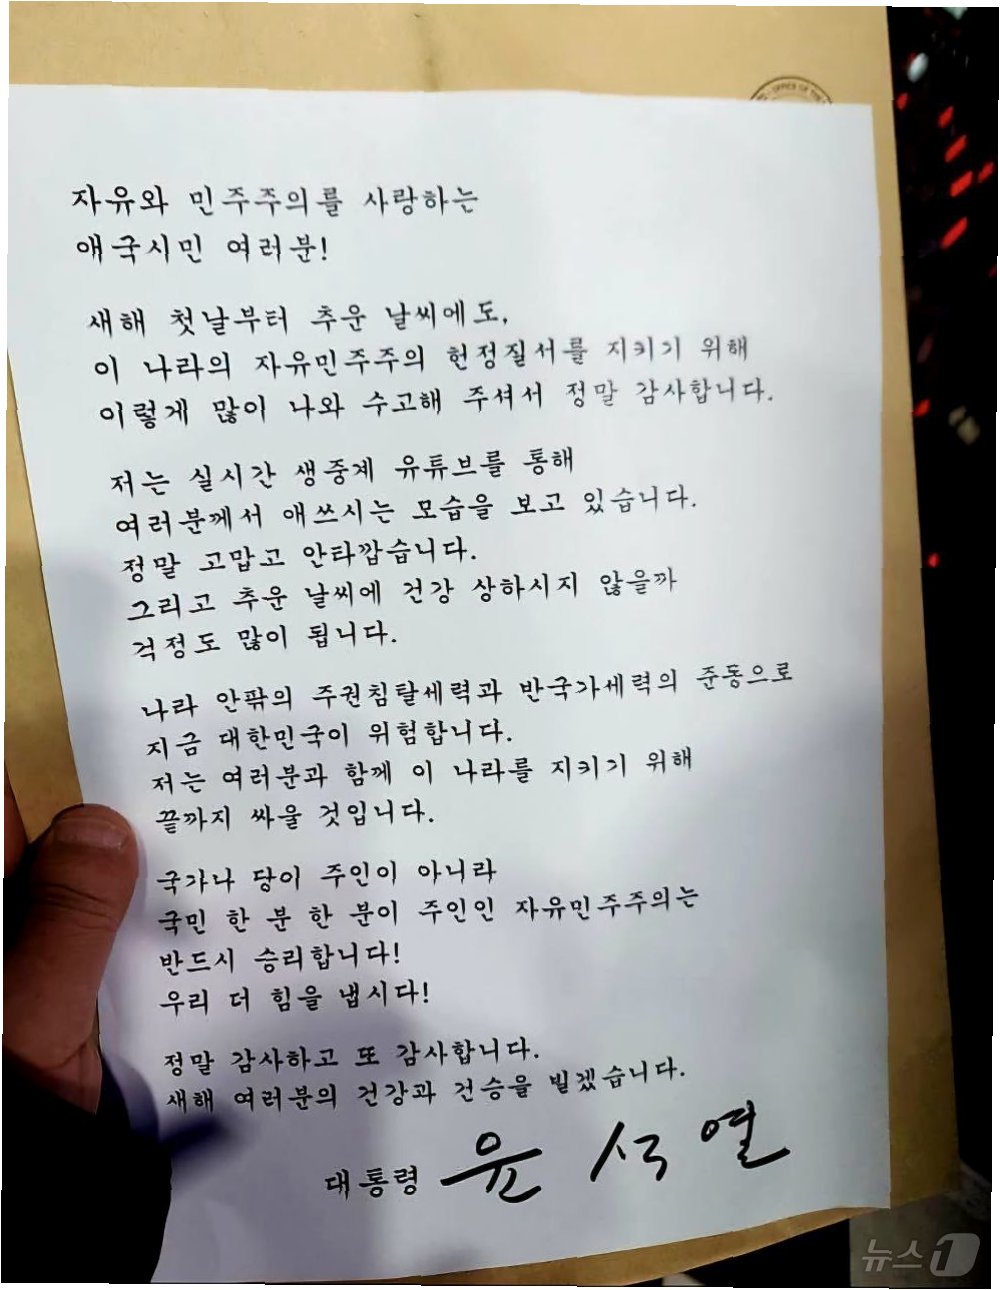 OFFICE OF THE
자유와 민주주의를 사랑하는
애국시민 여러분!
새해 첫날부터 추운 날씨에도,
이 나라의 자유민주주의 헌정질서를 지키기 위해
이렇게 많이 나와 수고해 주셔서 정말 감사합니다.
저는 실시간 생중계 유튜브를 통해
여러분께서 애쓰시는 모습을 보고 있습니다.
정말 고맙고 안타깝습니다.
그리고 추운 날씨에 건강 상하시지 않을까
걱정도 많이 됩니다.
나라 안팎의 주권침탈세력과 반국가세력의 준동으로
지금 대한민국이 위험합니다.
저는 여러분과 함께 이 나라를 지키기 위해
끝까지 싸울 것입니다.
국가나 당이 주인이 아니라
국민 한 분 한 분이 주인인 자유민주주의는
반드시 승리합니다!
우리 더 힘을 냅시다!
정말 감사하고 또 감사합니다.
새해 여러분의 건강과 건승을 빌겠습니다.
대통령 윤 석 열
뉴스1